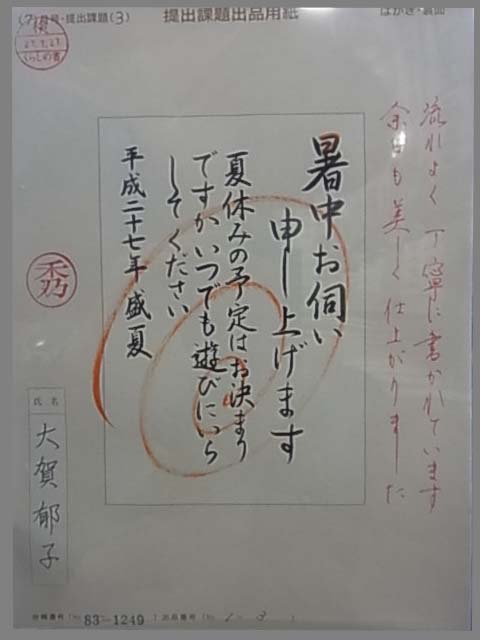 提出課題(3) 提出課題出品用紙
暑中お伺い
申し上げます
夏休みの予定はお決まり
ですか いつでも遊びにいら
してください
平成二十七年 盛夏
流れよく丁寧に書かれています
余白も美しく仕上がりました
秀
氏名
大賀郁子
83-1249